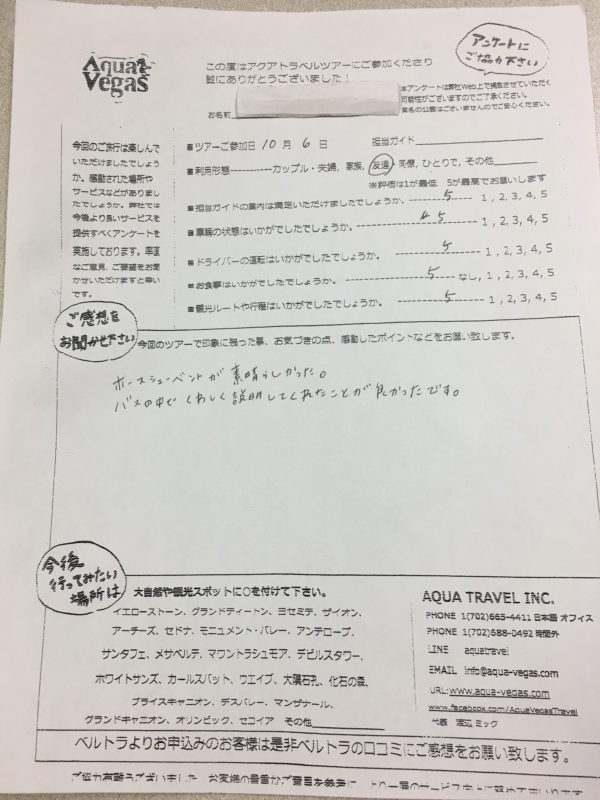 Aqua
Vegas
この度はアクアトラベルツアーにご参加くださり
誠にありがとうございました！
アンケートに
ご協力下さい
本アンケートは弊社Web上で掲載させていただく
可能性がございますのでご了承ください。
実名の公表はございませんのでご安心ください。
お名前
今回のご旅行は楽しんで
いただけましたでしょう
か。感動された場所や
サービスなどがありまし
たでしょうか。弊社では
今後より良いサービスを
提供すべくアンケートを
実施しております。率直
なご意見、ご要望をお聞
かせいただけますと幸い
です。
■ツアーご参加日 10月 6日 担当ガイド
■利用形態-----------カップル・夫婦, 家族, 友達, 同僚, ひとりで, その他
※評価は1が最低 5が最高でお願いします
■担当ガイドの案内は満足いただけましたでしょうか。 5 1, 2, 3, 4, 5
■車輌の状態はいかがでしたでしょうか。 4 5 1, 2, 3, 4, 5
■ドライバーの運転はいかがでしたでしょうか。 5 1, 2, 3, 4, 5
■お食事はいかがでしたでしょうか。 5 なし, 1, 2, 3, 4, 5
■観光ルートや行程はいかがでしたでしょうか。 5 1, 2, 3, 4, 5
ご感想を
お聞かせ下さい
今回のツアーで印象に残った事、お気づきの点、感動したポイントなどをお願い致します。
ホースシューベントが素晴らしかった。
バスの中でくわしく説明してくれたことが良かったです。
今後
行ってみたい
場所は
大自然や観光スポットに○を付けて下さい。
イエローストーン、グランドティートン、ヨセミテ、ザイオン、
アーチーズ、セドナ、モニュメント・バレー、アンテロープ、
サンタフェ、メサベルテ、マウントラシュモア、デビルスタワー、
ホワイトサンズ、カールスバット、ウエイブ、大隕石孔、化石の森、
ブライスキャニオン、デスバレー、マンザナール、
グランドキャニオン、オリンピック、セコイア その他
AQUA TRAVEL INC.
PHONE 1(702)665-4411 日本語 オフィス
PHONE 1(702)588-0492 時間外
LINE aquatravel
EMAIL info@aqua-vegas.com
URL: www.aqua-vegas.com
www.facebook.com/AquaVegasTravel
代表 渡辺 ミック
ベルトラよりお申込みのお客様は是非ベルトラの口コミにご感想をお願い致します。